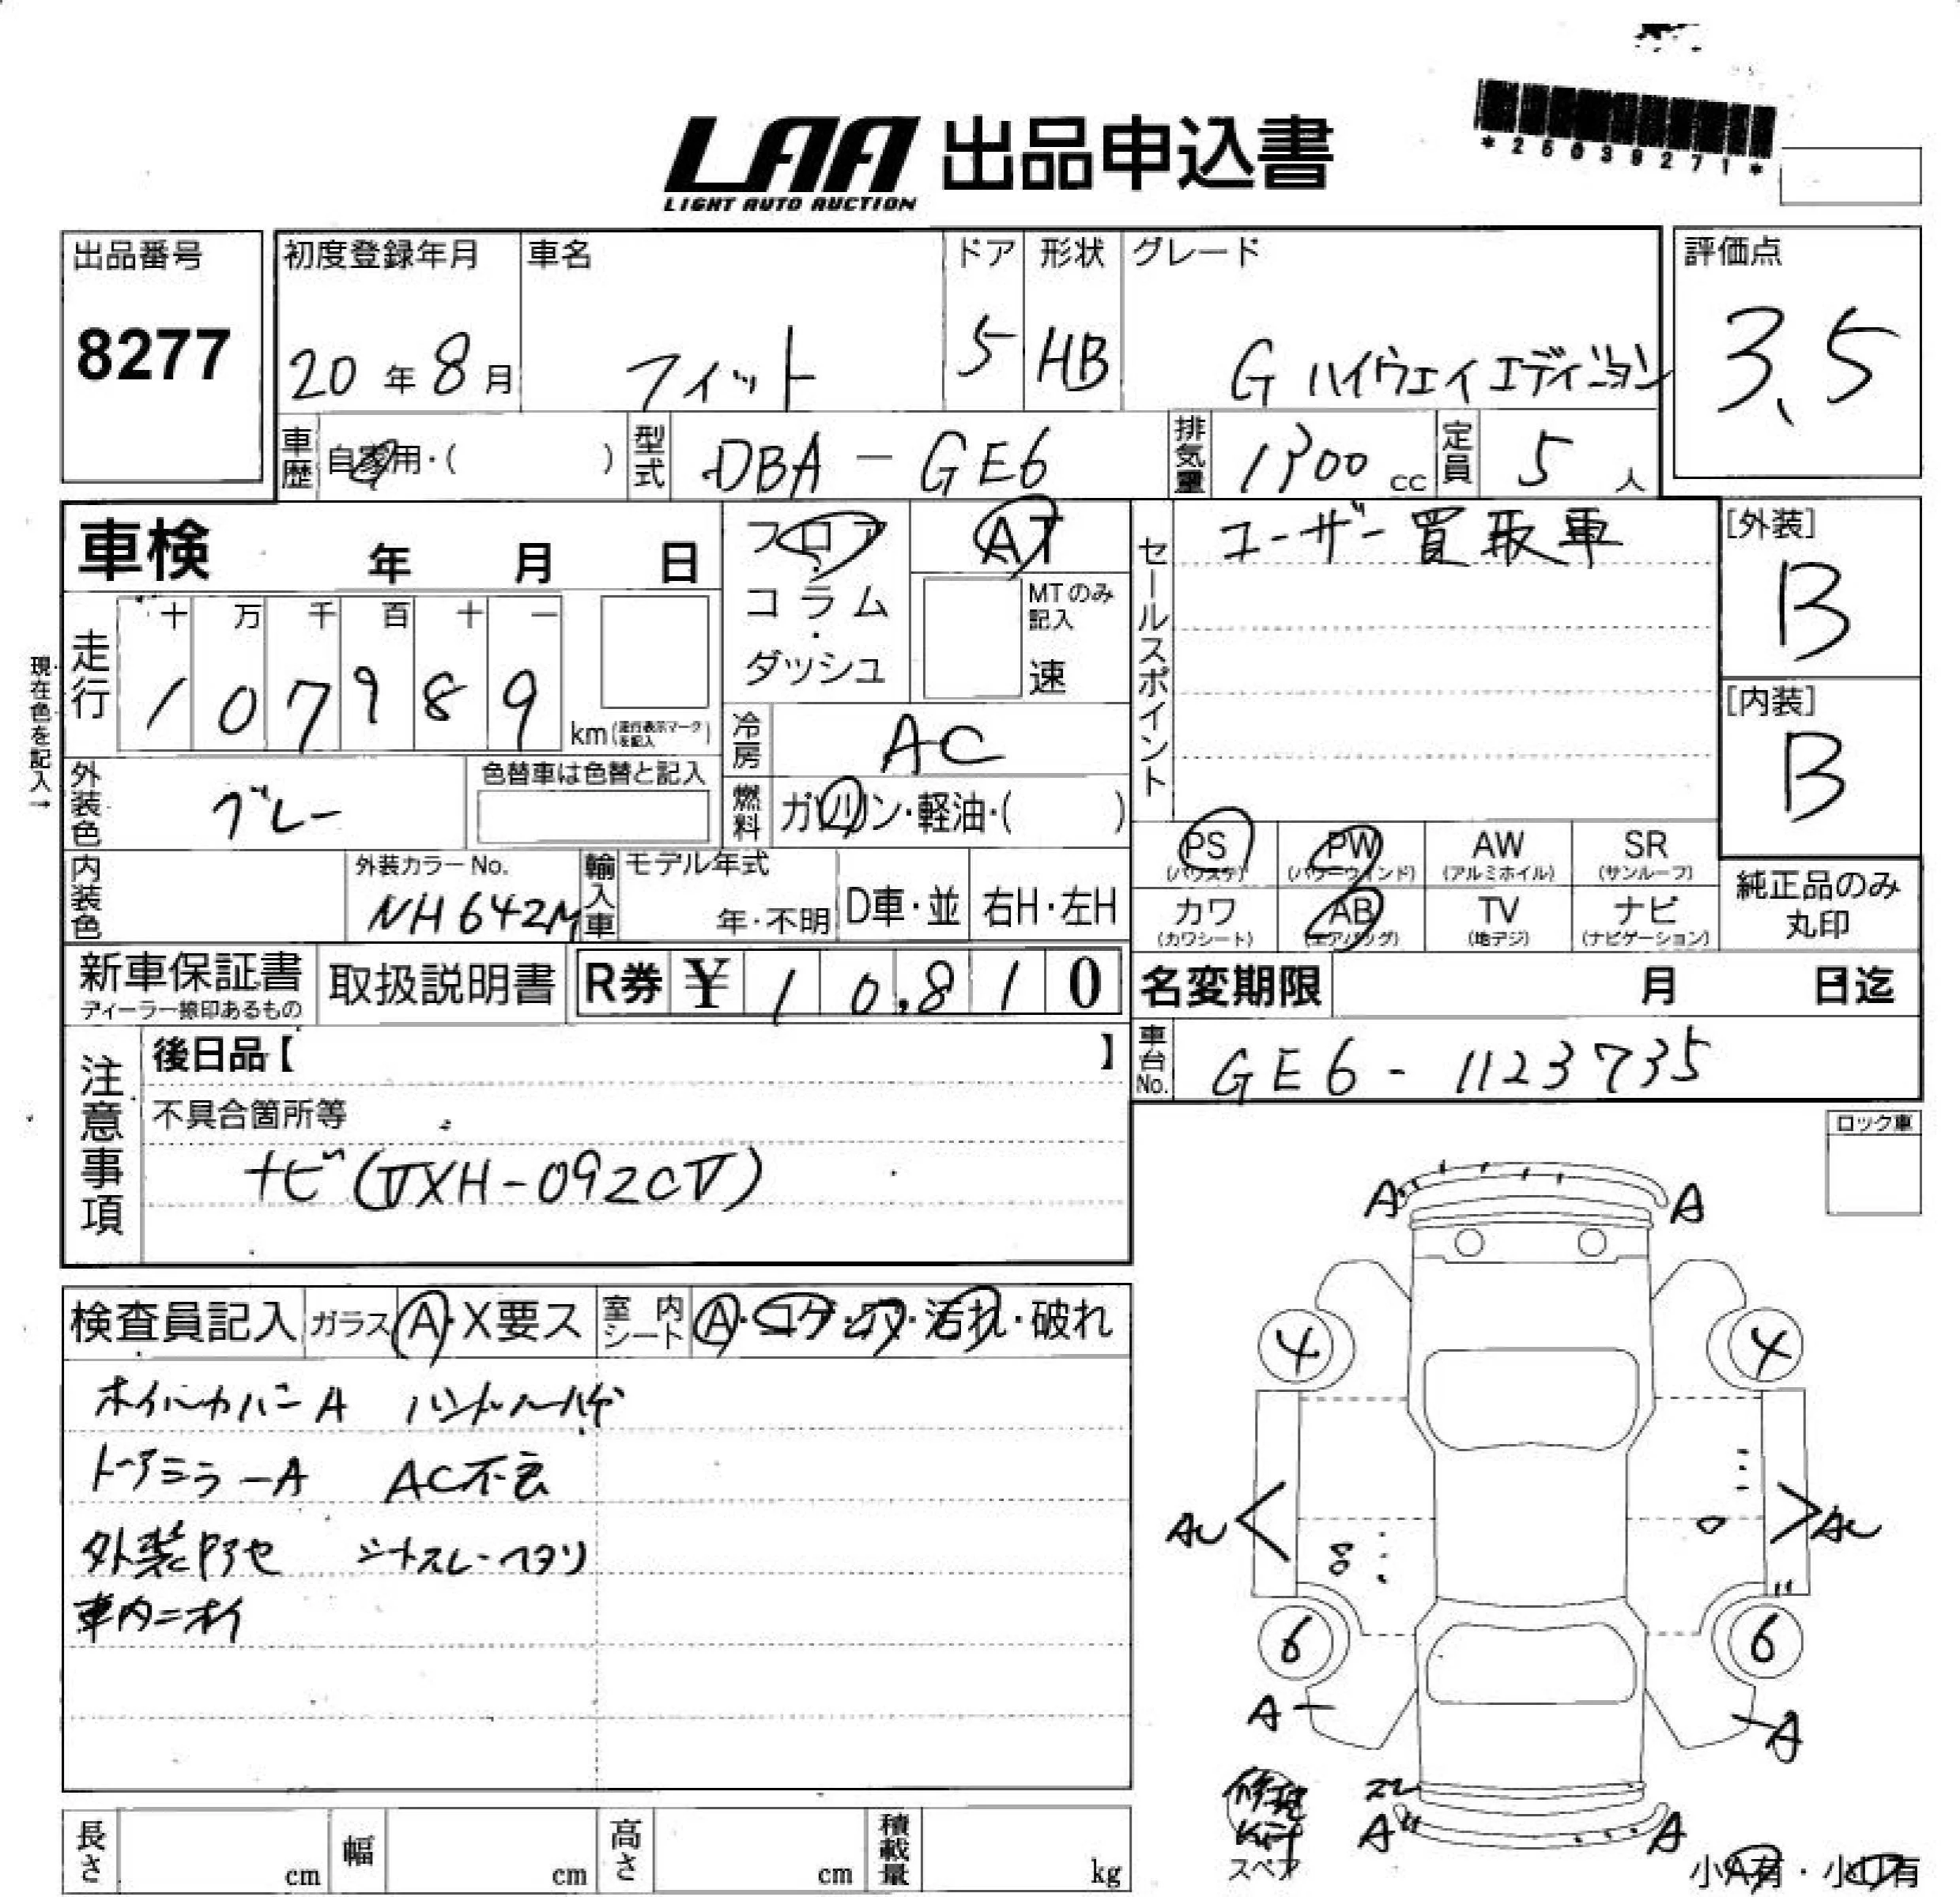 *26039271*
LAA 出品申込書
LIGHT AUTO AUCTION
出品番号
8277
初度登録年月
20年8月
車名
フィット
ドア
5
形状
HB
グレード
G ハイウェイエディション
評価点
3.5
車歴
自家用・( )
型式
DBA-GE6
排気量
1300 cc
定員
5人
車検 年 月 日
フロア・コラム・ダッシュ
AT
MTのみ記入
速
セールスポイント
ユーザー買取車
[外装]
B
[内装]
B
現在色を記入→
走行
十 万 千 百 十 一
1 0 7 9 8 9
km(走行表示マークを記入)
冷房
AC
外装色
グレー
色替車は色替と記入
燃料
ガソリン・軽油・( )
PS
(パワステ)
PW
(パワーウインド)
AW
(アルミホイル)
SR
(サンルーフ)
カワ
(カワシート)
AB
(エアバッグ)
TV
(地デジ)
ナビ
(ナビゲーション)
純正品のみ
丸印
内装色
外装カラーNo.
NH642M
輸入車
モデル年式
年・不明
D車・並
右H・左H
新車保証書
ディーラー捺印あるもの
取扱説明書
R券 ¥ 10,810
名変期限 月 日迄
車台No.
GE6-1123735
注意事項
後日品【 】
不具合箇所等
ナビ(VXH-092CV)
ロック車
検査員記入
ガラス A・X要ス
室内シート
A・コゲ・穴・汚れ・破れ
ホイルカバーA ハンドルハゲ
ドアミラーA AC不良
外装アセ シートスレ・ヘタリ
車内ニオイ
A A
4 4
AU AU
6 6
A A
修理
Kit
スペア
スレ
A A
小A有・小U有
長さ cm
幅 cm
高さ cm
積載量 kg